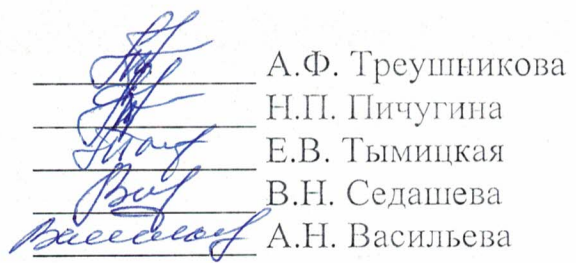 А.Ф. Треушникова
Н.П. Пичугина
Е.В. Тымицкая
В.Н. Седашева
А.Н. Васильева